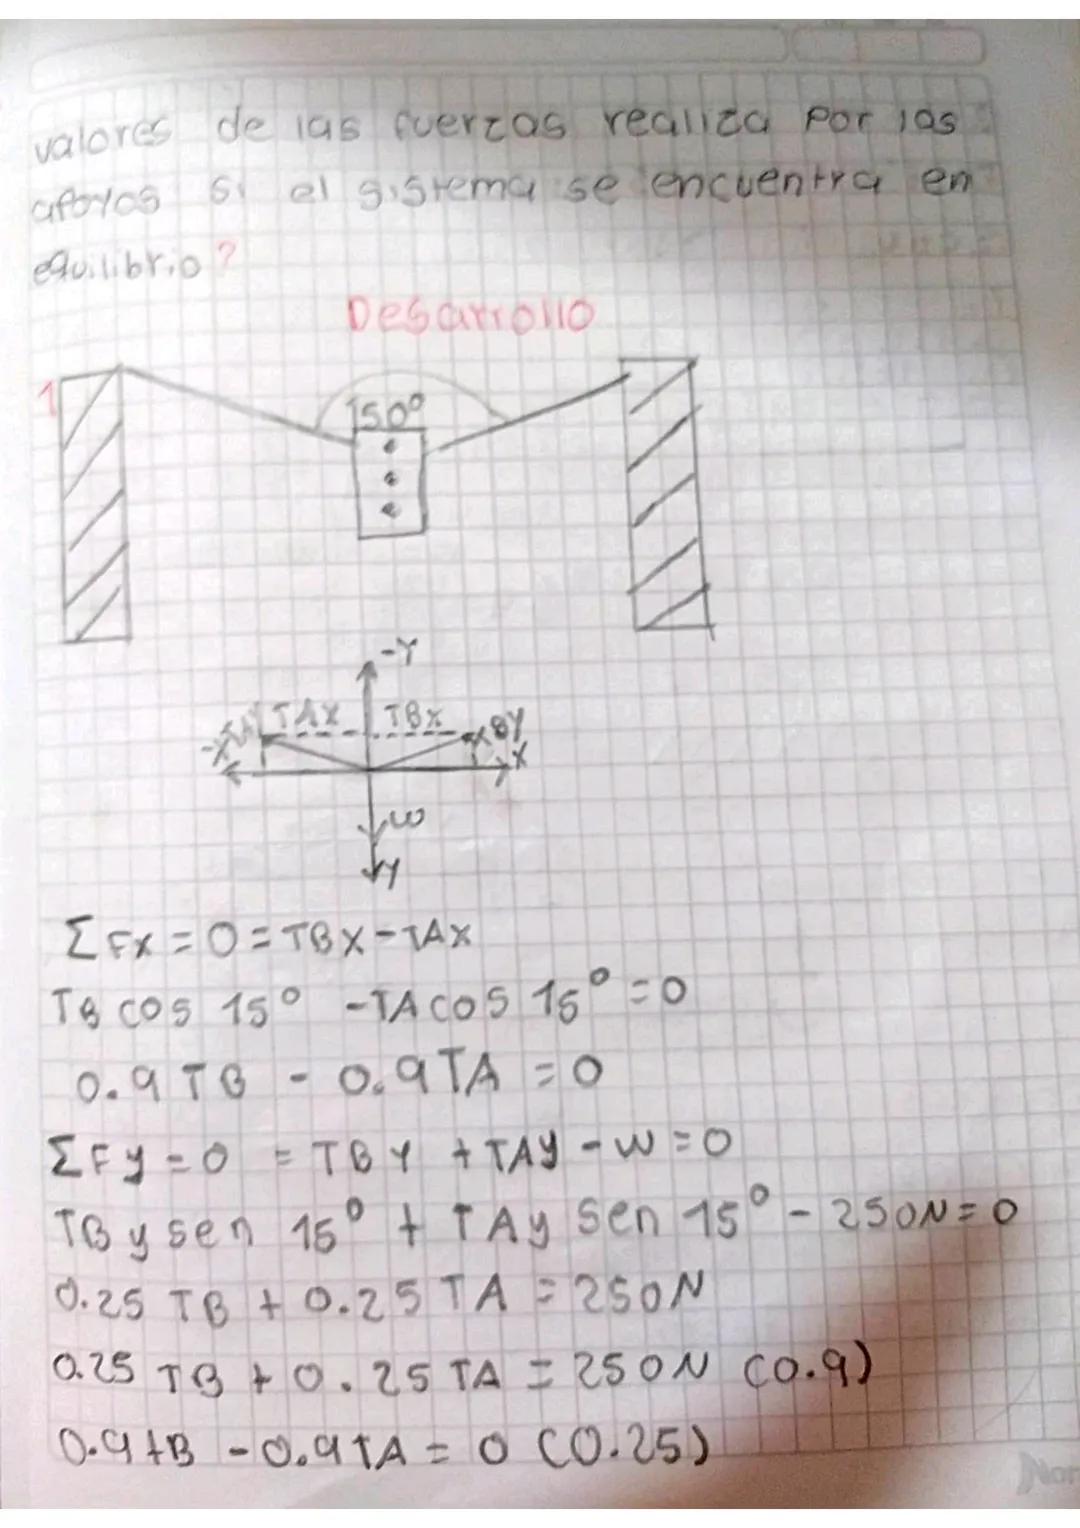 valores de las fuerzas realiza por los
apoyos si el sistema se encuentra en
equilibrio?
Desarrollo
1
150°
-Y
TAX TBX
-X
BY
X
W
Y
Σ FX = 0 = TBX - TAX
TB COS 15° - TA COS 15° = 0
0.9 TB - 0.9 TA = 0
Σ Fy = 0 = TBY + TAY - W = 0
TBy sen 15° + TAy sen 15° - 250N = 0
0.25 TB + 0.25 TA = 250N
0.25 TB + 0.25 TA = 250N (0.9)
0.9 TB - 0.9 TA = 0 (0.25)
Nor